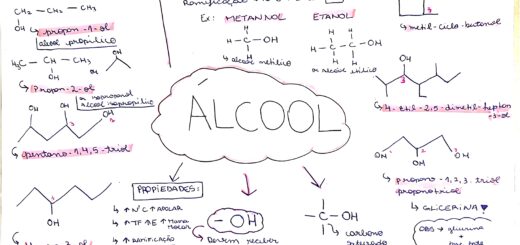 CH₂ - CH₂ - CH₃
OH
propan-1-ol
álcool propílico
H₃C - CH - CH₃
OH
Propan-2-ol
ou isopropanol
álcool isopropílico
OH
OH
OH
3
pentano-1,4,5-triol
OH
Ex: METANNOL
ETANOL
H
H-C-OH
H
álcool metílico
H H
H-C-C-OH
H H
ou álcool etílico
ÁLCOOL
PROPIEDADES:
↑ NºC ↑ APOLAR
↑ TF ↑ E
↑ RAMIFICAÇÃO
-OH
Devem receber
-C-OH
carbono
saturado
metil-ciclo-butanol
OH
3
4-etil-2,5-dimetil-heptan
-3-ol
OH
OH
OH
1
2
3
propano-1,2,3-triol
propanotriol
GLICERINA
OBS → glicerina